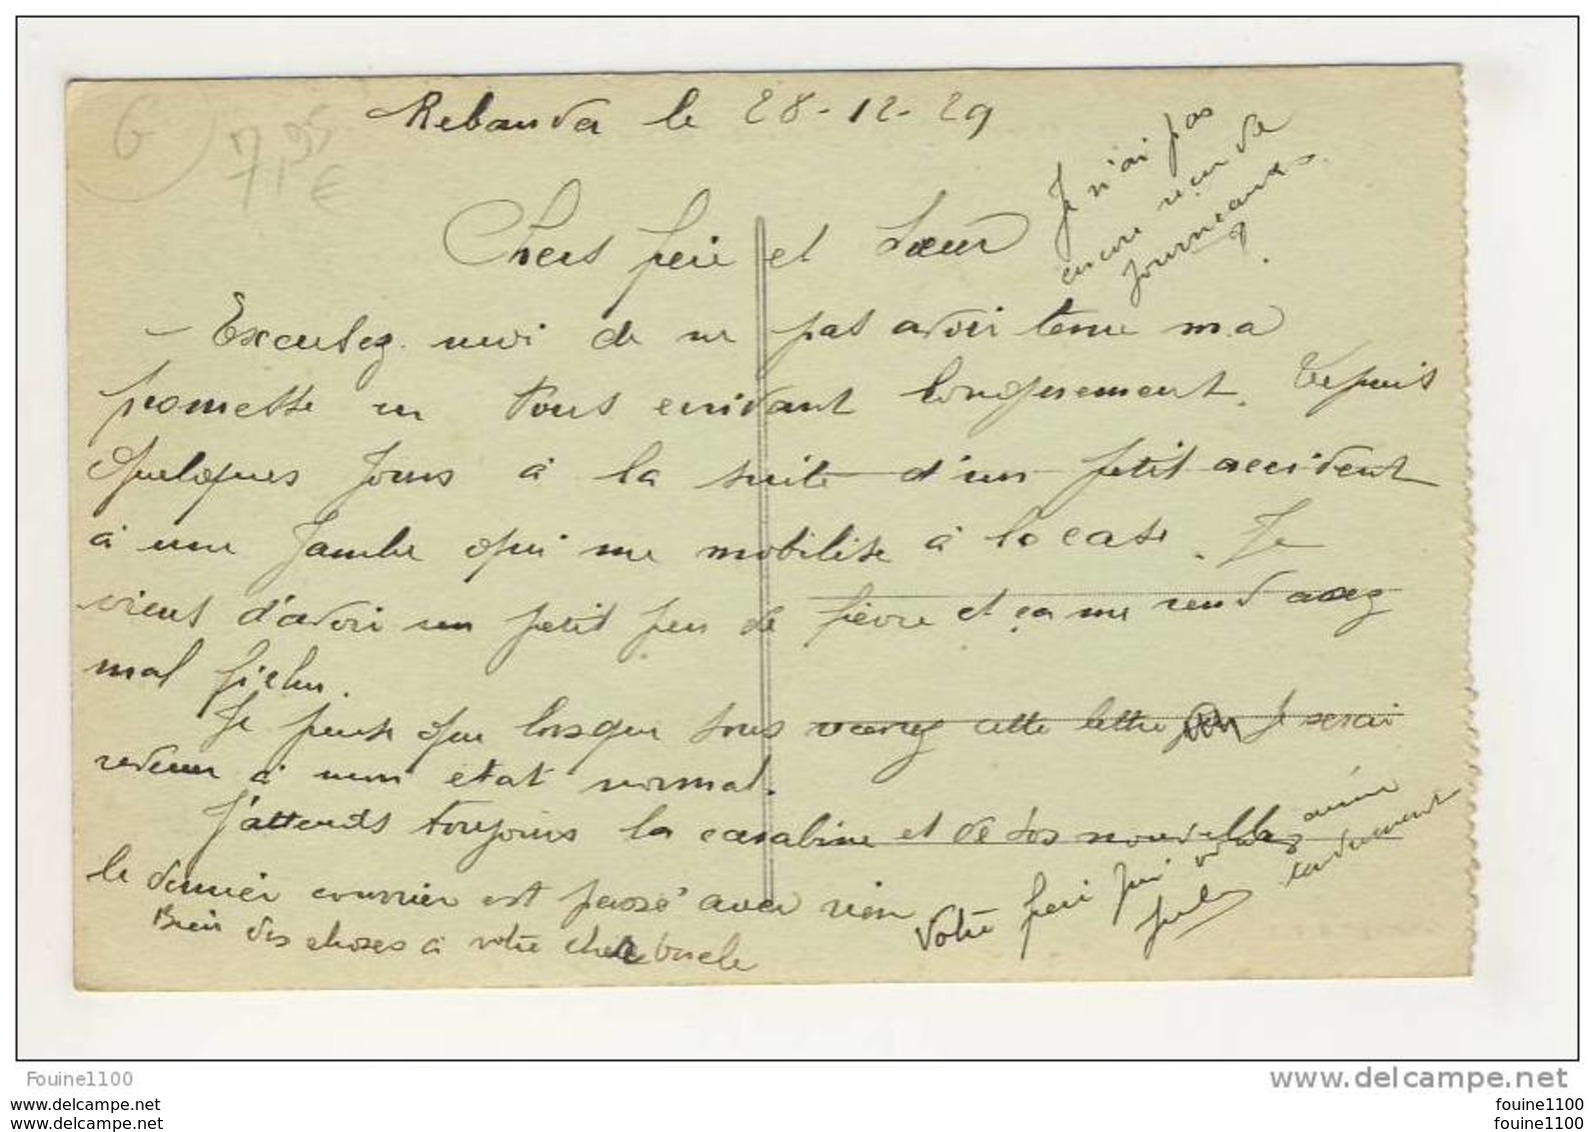 G
7,95
€
Rebanda le 28-12-29
Je n'ai pas
encore reçu de
journeaux.
Chers frère et Soeur
- Excusez moi de ne pas avoir tenu ma
promesse en vous ecrivant longuement. Depuis
quelques jours à la suite d'un petit accident
à une jambe qui me mobilise à la case. Je
viens d'avoir un petit peu de fièvre et ça me rend assez
mal fichu.
Je pense que lorsque vous verrez cette lettre je serai
revenu à mon etat normal.
J'attends toujours la carabine et de vos nouvelles
le dernier courrier est passé avec rien
Bien des choses à votre cher oncle
Votre frère qui vous aime
tendrement
Jules
Fouine1100
www.delcampe.net
www.delcampe.net
www.delcampe.net
fouine1100
fouine1100